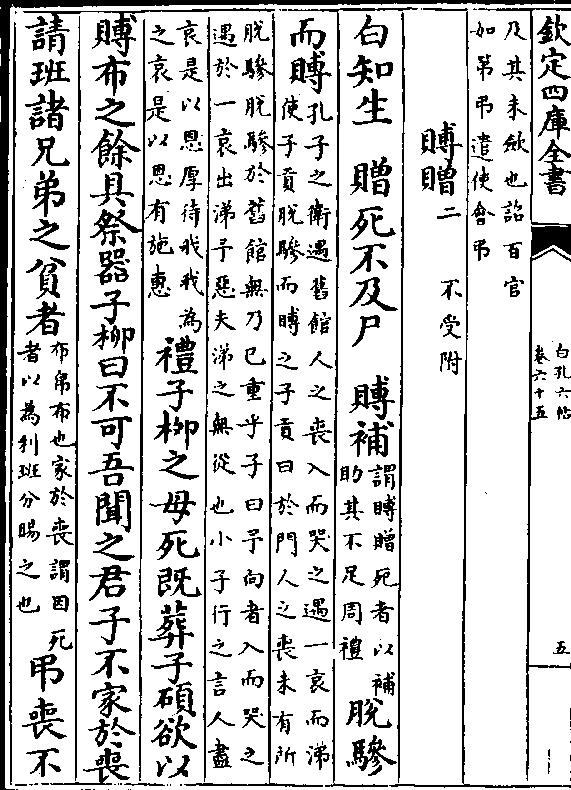 欽定四庫全書
白孔六帖
卷六十五
五
及其未斂也詔百官
如第弔遣使會弔
賻贈二
不受附
白知生
贈死不及尸
賻補
謂賻贈死者以補
助其不足周禮
脫驂
而賻
孔子之衛遇舊館人之喪入而哭之遇一哀而涕
使子貢脫驂而賻之子貢曰於門人之喪未有所
脫驂脫驂於舊館無乃已重乎子曰予向者入而哭之
遇於一哀出涕予惡夫涕之無從也小子行之言人盡
哀是以恩厚待我我為
之哀是以恩有施惠
禮子柳之母死既葬子碩欲以
賻布之餘具祭器子柳曰不可吾聞之君子不家於喪
請班諸兄弟之貧者
布帛布也家於喪謂因死
者以為利班分賜之也
弔喪不